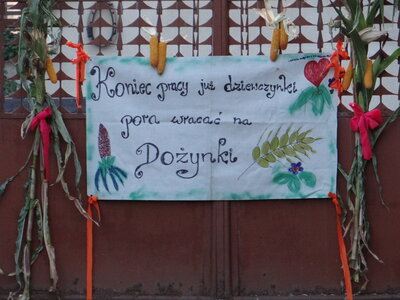 Koniec pracy już dziewczynki
pora wracać na
Dożynki